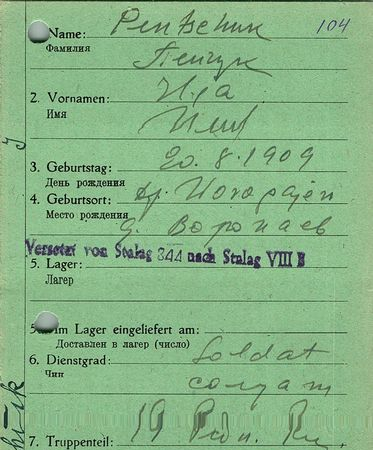 Name: Pentschuk 104
Фамилия
Пенчук
2. Vornamen: Ilja
Имя
3. Geburtstag: 20.8.1909
День рождения
4. Geburtsort:
Место рождения
Versetzt von Stalag 344 nach Stalag VIII B
5. Lager:
Лагер
im Lager eingeliefert am:
Доставлен в лагер (число)
6. Dienstgrad: Soldat
Чин солдат
7. Truppenteil: 19